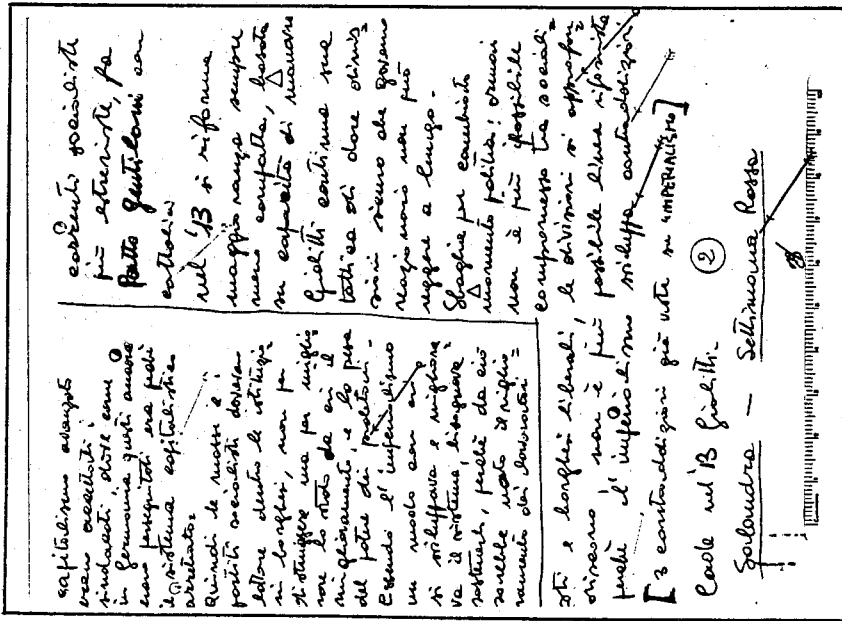 capitalismo avanzato
erano accettati i
sindacati, dove come
in Germania questi ancora
erano perseguitati era perché
il sistema capitalistico
arretrato
Quindi le masse e i
partiti socialisti dovevano
lottare dentro le istituzio
ni borghesi, non per
distruggere ma per miglio
rare lo stato da cui il
miglioramento, e la presa
del potere dei proletari -
Essendo l'imperialismo
un modo con cui
si sviluppava e migliora
va il sistema, bisognava
sostenerlo, perché da ciò
sarebbe nato il miglio=
ramento dei lavoratori =
correnti socialiste
più estremiste, fa
Patto Gentiloni con
cattolici
nel '13 si riforma
maggioranza sempre
meno compatta, basata
su capacità di manovre
Giolitti continua sua
tattica di dare dimis=
sioni sicuro che governo
reazionario non può
reggere a lungo -
Sbaglia per cambiato
momento politico: ormai
non è più possibile
compromesso tra sociali=
sti e borghesi liberali, le divisioni si approfon=
discono, non è più possibile linea riformista
perché l'imperialismo sviluppa contraddizioni
[3 contraddizioni già viste su "IMPERIALISMO]
Cade nel '13 Giolitti -
②
Salandra — Settimana Rossa